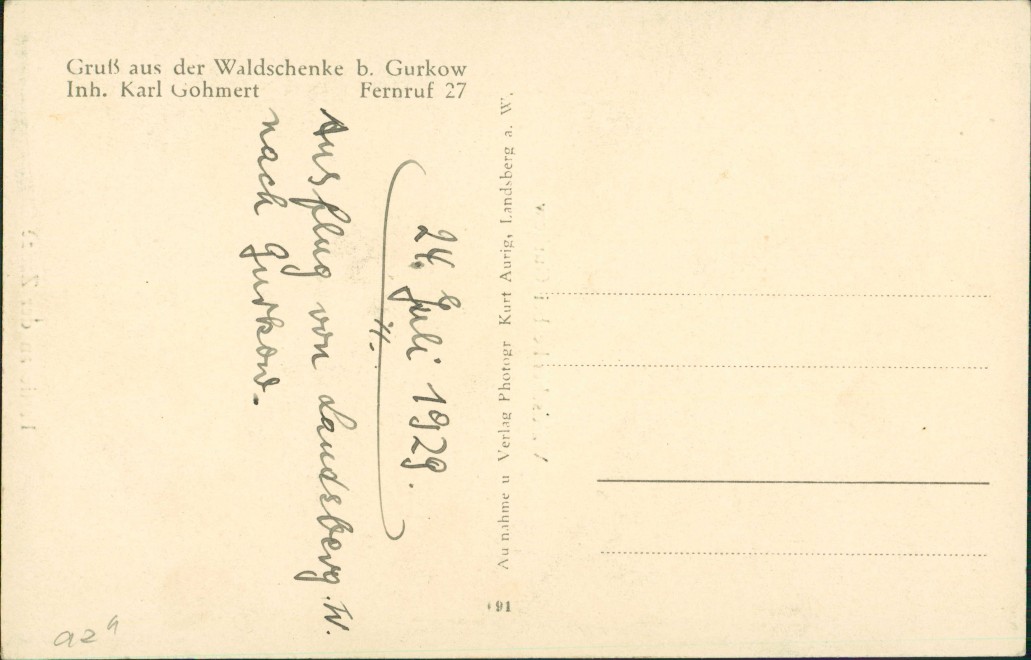 Gruß aus der Waldschenke b. Gurkow
Inh. Karl Gohmert Fernruf 27
24. Juli 1929.
Ausflug von Landsberg. W.
nach Gurkow.
Aufnahme u Verlag Photogr Kurt Aurig, Landsberg a. W.
91